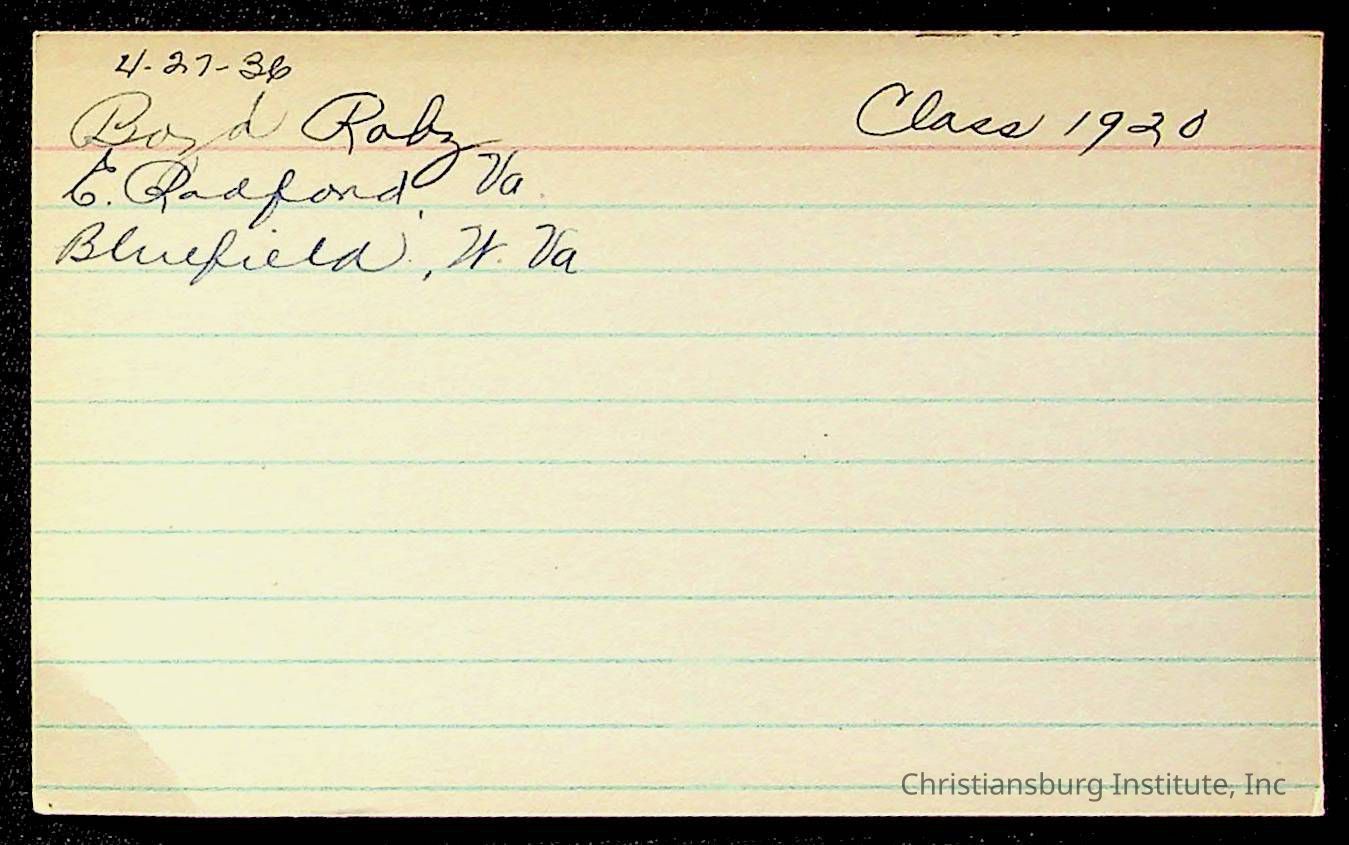 4-27-36
Boyd Raby Class 1920
E. Radford, Va.
Bluefield, W. Va
Christiansburg Institute, Inc